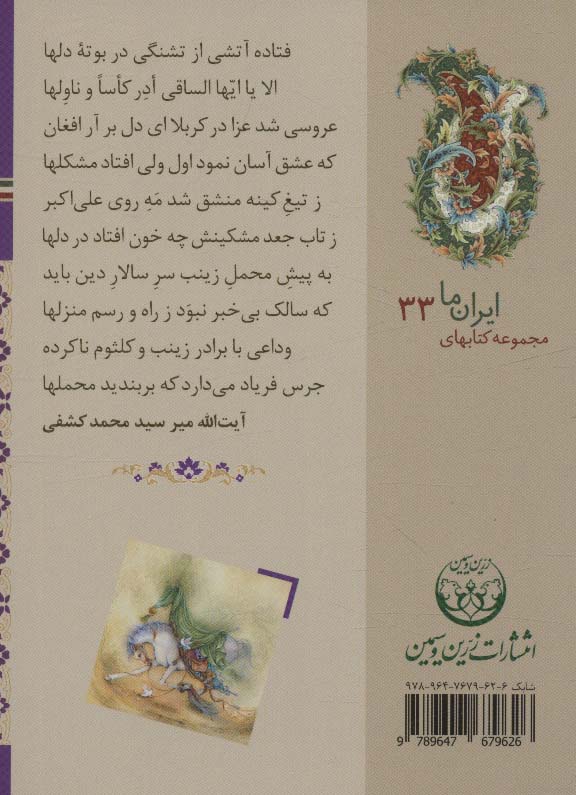 فتاده آتشی از تشنگی در بوتۀ دلها
الا یا ایّها الساقی أدِر کأساً و ناوِلها
عروسی شد عزا در کربلا ای دل بر آر افغان
که عشق آسان نمود اول ولی افتاد مشکلها
ز تیغِ کینه منشق شد مَهِ روی علی‌اکبر
ز تاب جعد مشکینش چه خون افتاد در دلها
به پیشِ محملِ زینب سرِ سالارِ دین باید
که سالک بی‌خبر نبوَد ز راه و رسم منزلها
وداعی با برادر زینب و کلثوم ناکرده
جرس فریاد می‌دارد که بربندید محملها
آیت‌الله میر سید محمد کشفی
ایران ما ۳۳
مجموعه کتابهای
زرین و سیمین
انتشارات زرّین و سیمین
شابک ۶-۶۲-۷۶۷۹-۹۶۴-۹۷۸
9 789647 679626